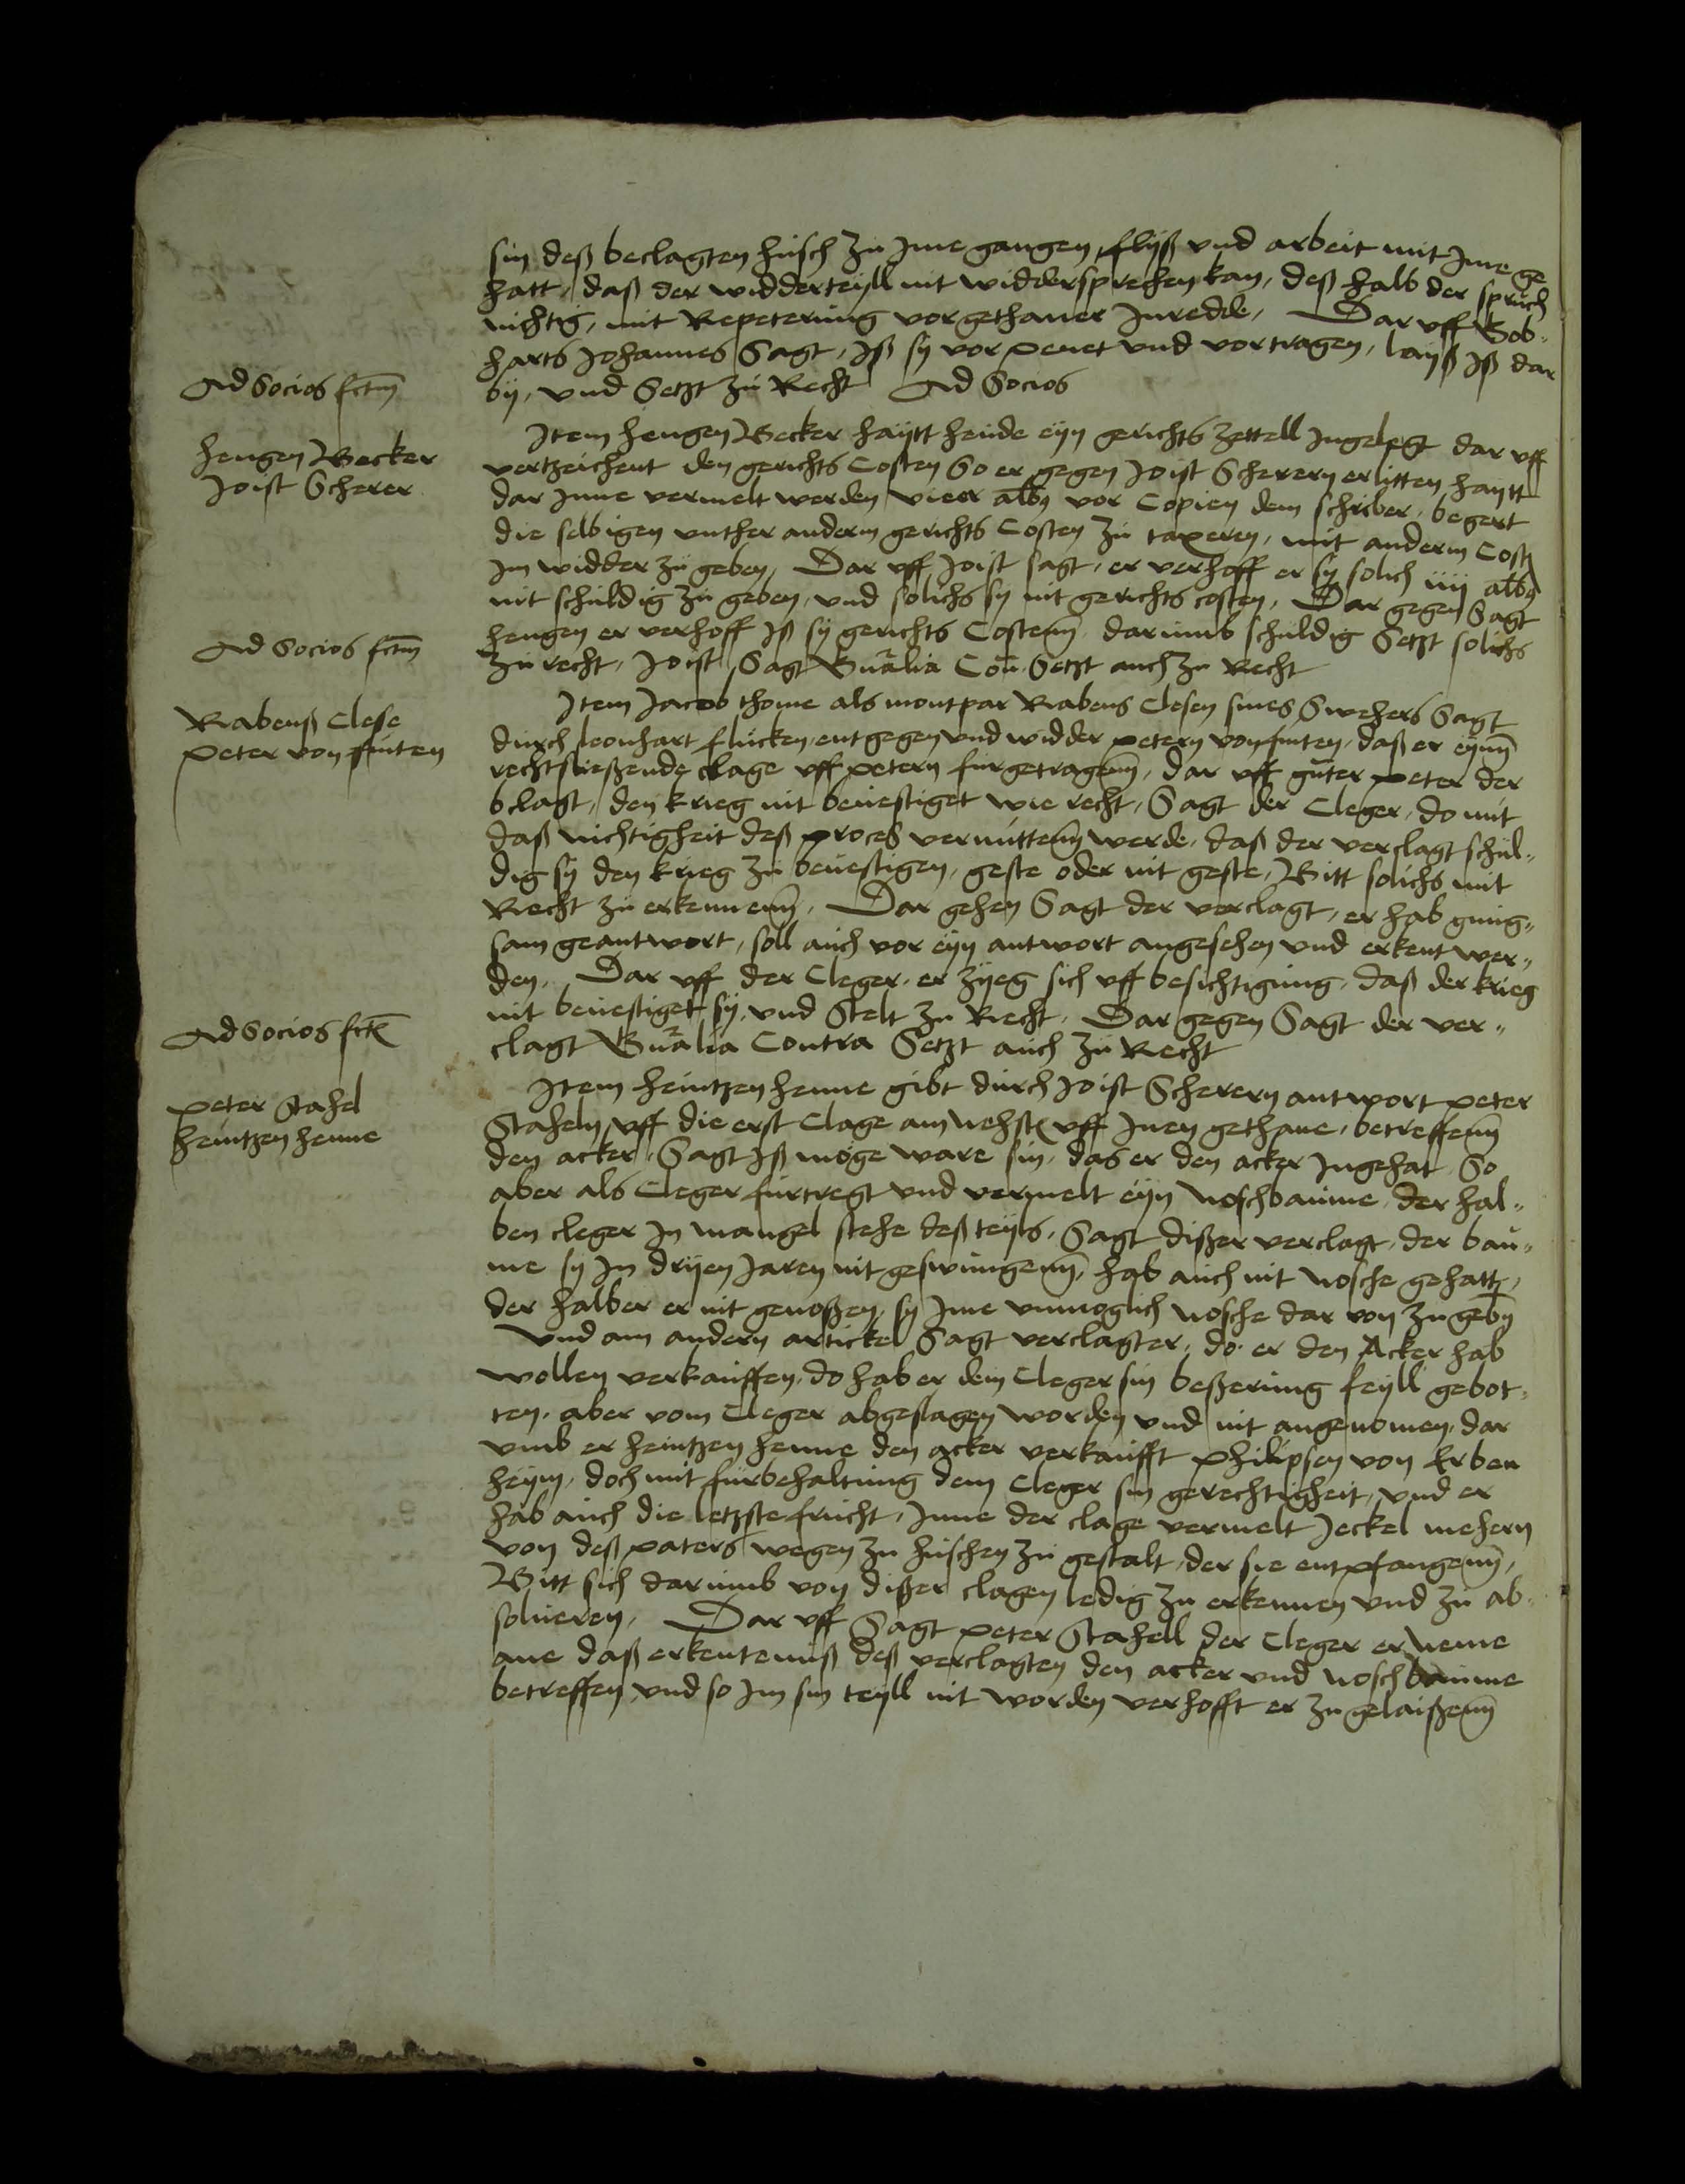 sin deß beclagten husch zu Jme gangen, flyß vnd arbeit mit Jme ge
hatt, daß der widderteyll nit widdersprechen kan, deß halb der spruch
nichtig, mit Repeterung vorgethaner Jnredde, Dar uff Gob-
harts Johannes Sagt, Jß sy vor penet vnd vortragen, layß Jß dar
by, vnd Setzt zu Recht Ad Socios
Ad Socios fctm
Hengen Becker
Joist Scherer
Item Hengen Becker haytt heude eyn gerichts zettell Jngelegt dar uff
vertzeichent den gerichts Costen So er gegen Joist Scherern erlitten haytt
dar Jnne vermelt werden vieer albg vor Copien dem schriber, begert
die selbigen vnther anderm gerichts Costen zu taxeren, mit anderm Cost
Jm widder zu geben, Dar uff Joist sagt, er verhoff er sy solich iiij albg
nit schuldig zu geben, vnd solichs sy nit gerichts costen, Dar gegen Sagt
Hengen er verhoff Jß sy gerichts Costenn darumb schuldig Setzt solichs
zu recht, Joist Sagt Gnalia Con Setzt auch zu Recht
Ad Socios fctm
Rabenß Clese
Peter von finten
Item Jacob thome als montpar Rabens Clesen sines Swehers Sagt
durch leonhart flucken, entgegen vnd widder petern von finten, daß er eynn
rechtsließende clage uff petern furgetragenn, dar uff guter peter der
bclagt, den krieg nit beuestiget wie recht, Sagt der Cleger, do mit
daß nichtigheit deß proces vermittenn werde, daß der verclagt schul-
dig sy den krieg zu beuestigen, geste oder nit geste, Bitt solichs mit
Recht zu erkennenn, Dar gehen Sagt der verclagt, er hab gnug-
sam geantwort, soll auch vor eyn antwort angesehen vnd erkent wer-
den, Dar uff der Cleger, er zyeg sich uff besichtigung, daß der krieg
nit beuestiget sy, vnd Stelt zu Recht, Dar gegen Sagt der ver-
clagt Gnalia Contra Setzt auch zu Recht
Ad Socios fct
Peter Stahel
Heintzen Henne
Item Heintzen Henne gibt durch Joist Scherern antwort peter
Staheln uff die erst Clage am nehst uff Jnen gethane, betreffenn
den acker, Sagt Jß möge ware sin, das er den acker Jngehat, So
aber als Cleger furtregt vnd vermelt eyn noschbaume, der hal-
ben cleger Jn mangel stehe deß teyls, Sagt dißer verclagt, der bau-
me sy Jn dryen Jaren nit geswungenn, hab auch nit nosche gehatt,
der halber er nit genoßen, sy Jme vnmoglich nosche dar von zu gebn
Vnd am andern artickel Sagt verclagter, do er den Acker hab
wollen verkauffen, do hab er dem Cleger sin beßerung feyll gebot-
ten, aber vom Cleger abgeslagen worden vnd nit angenomen, dar
vmb er Heintzen Henne den acker verkaufft philipsen von Erben
heym, doch mit furbehaltung dem Cleger sin gerechtigheit, vnd er
hab auch die letzste frucht, Jnne der clage vermelt Jeckel mehern
von deß paters wegen zu huschen zu gestalt, der sie entpfangenn,
Bitt sich darumb von dißer clagen ledig zu erkennen vnd zu ab-
solueren, Dar uff Sagt peter Stahell der Cleger er neme
ane daß erkentenniß deß verclagten den acker vnd noschbaume
betreffen, vnd so Jm sin teyll nit worden verhofft er zu gelaißenn